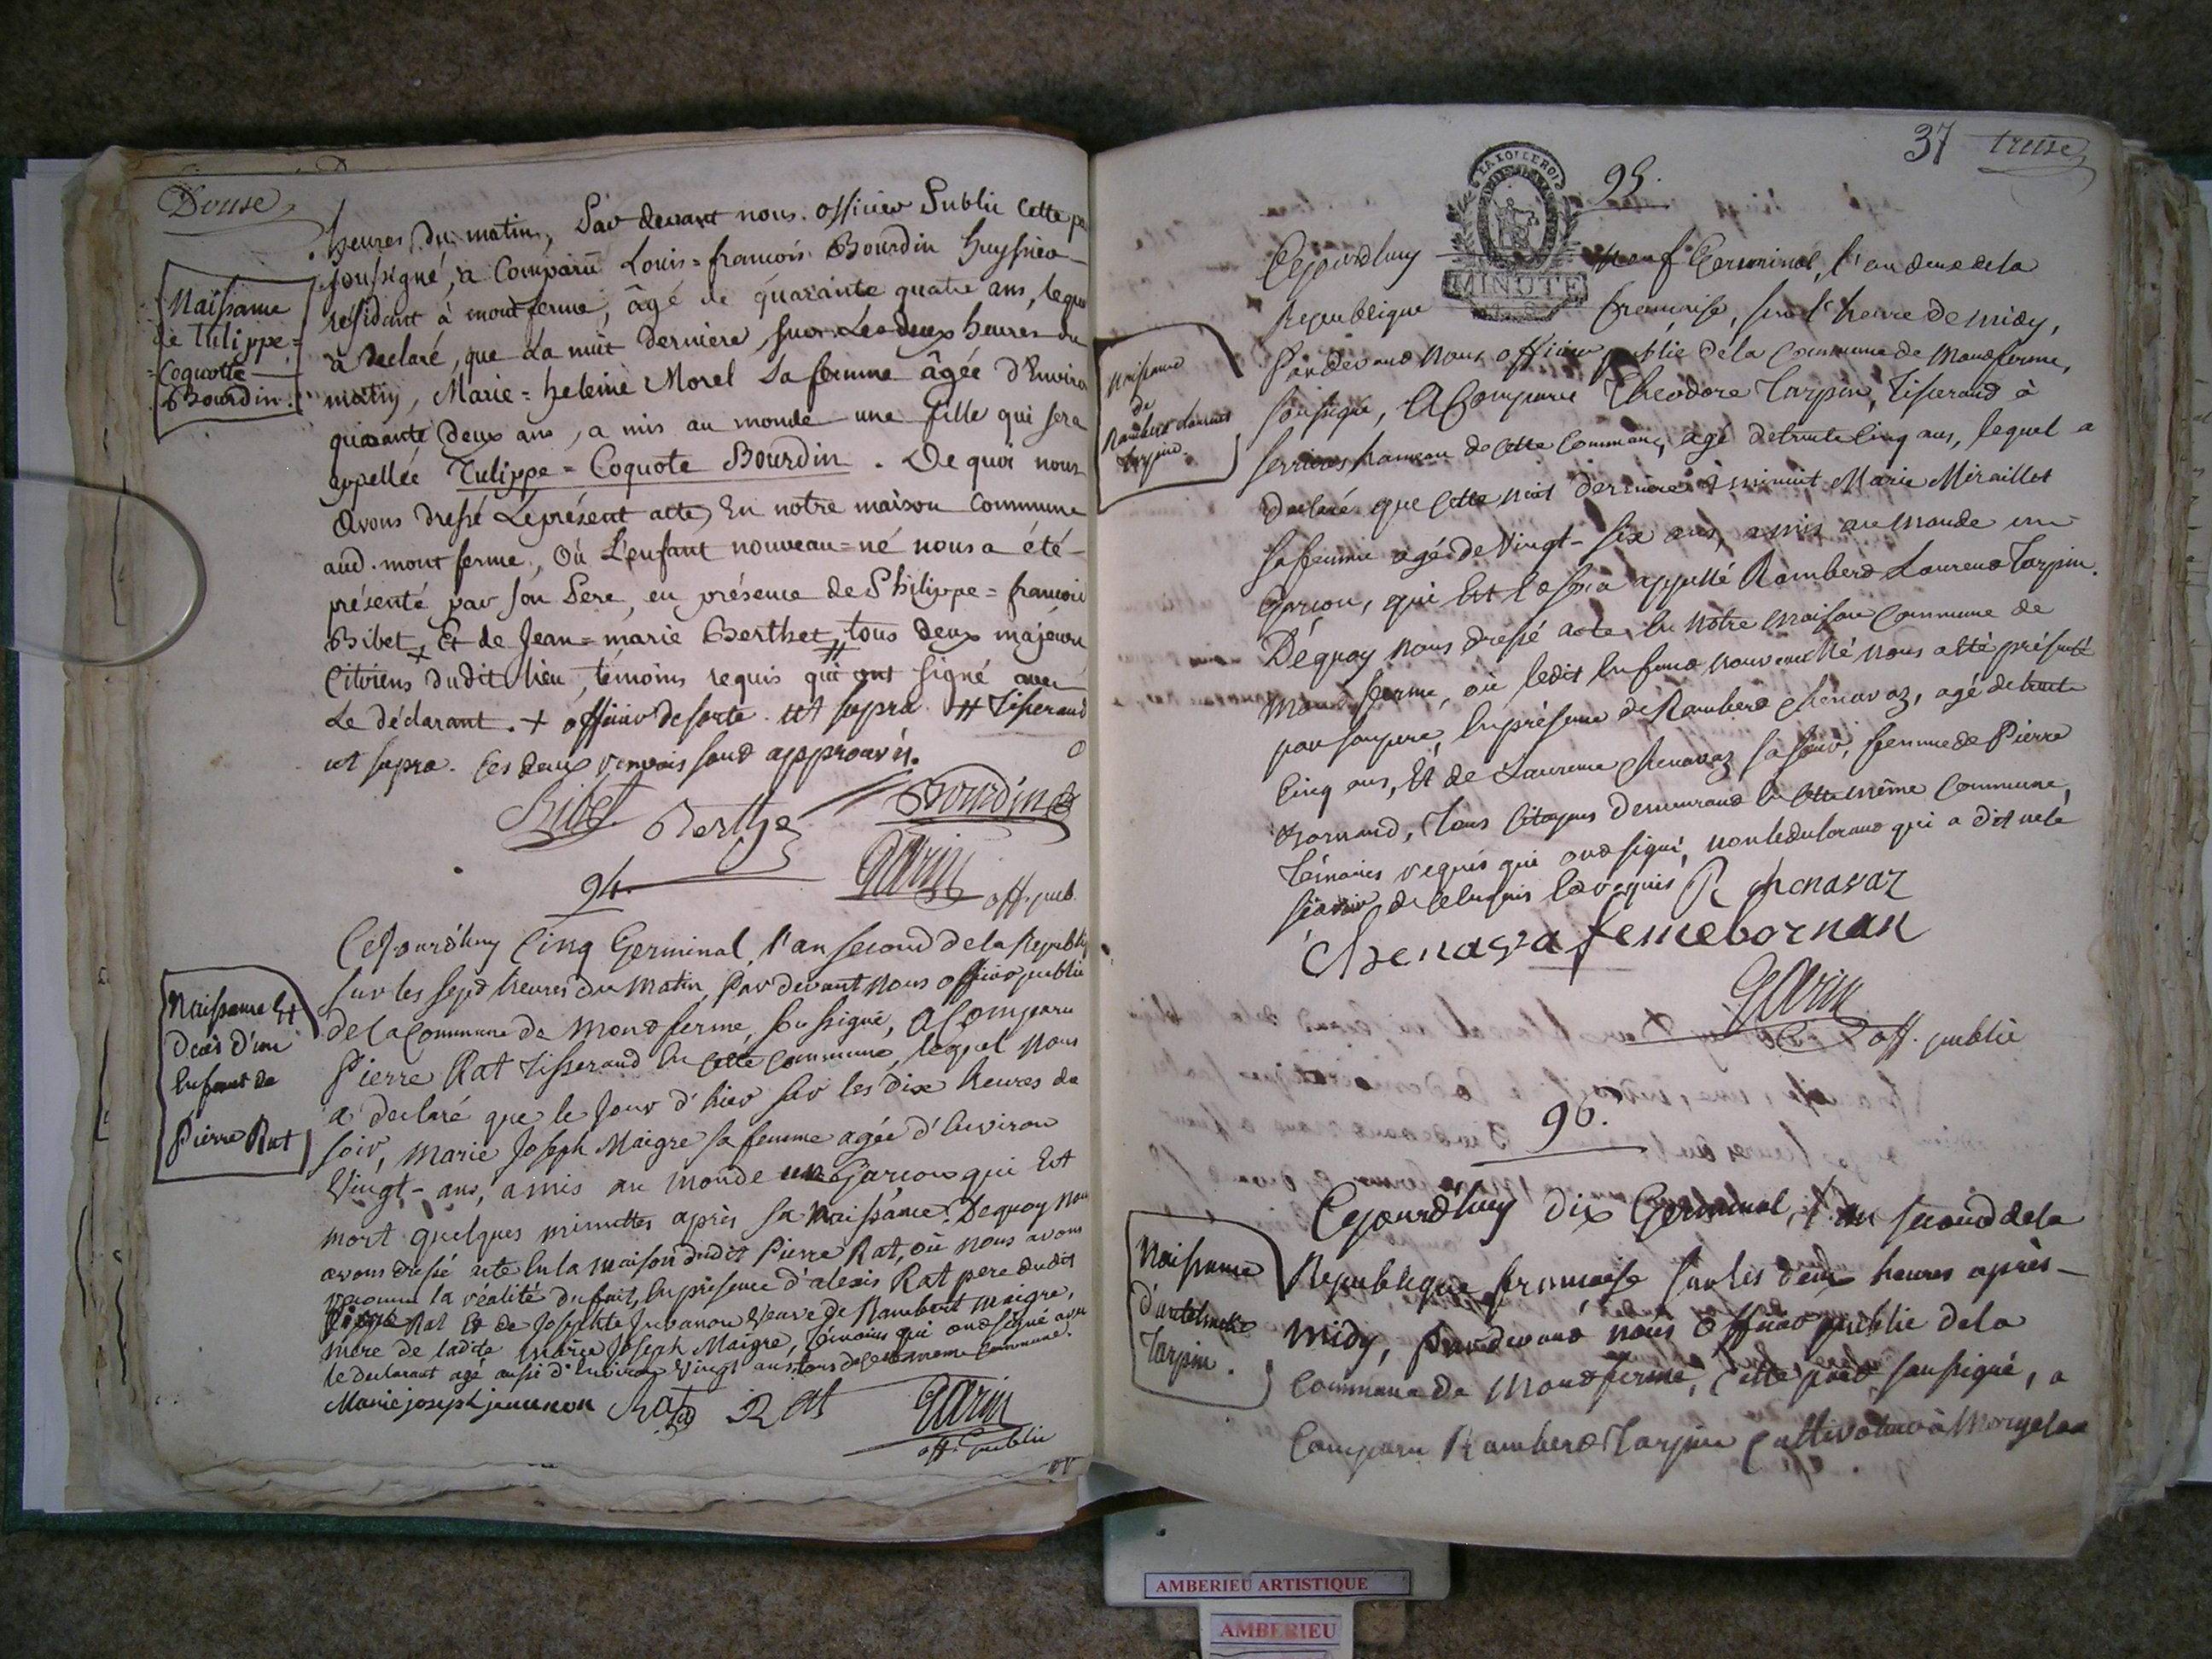 Douse
heures du matin, Par devant nous officier Public
soussigné, a Comparu Louis=francois Bourdin huyssier
résidant à mont ferme, âgé de quarante quatre ans, lequel
à déclaré, que La nuit derniere, sur Les deux heures du
matin, Marie=heleine Morel sa femme âgée d'Environ
quarante deux ans, a mis au monde une fille qui sera
appellée Tulippe=Coquote Bourdin. De quoi nous
avons dressé Le présent acte, En notre maison Commune
aud. mont ferme, Où L'enfant nouveau=né nous a été
présenté par son Pere, en présence de Philippe=francois
Bibet + Et de Jean=marie Berthet, # tous deux majeurs
Citoiens dudit lieu, témoins requis qui ont signé avec
Le déclarant. + officier de sante ut supra # Tisserand
ut supra. Ces deux renvois sont approuvés.
Naissance
de Tulippe=
=Coquotte
Bourdin.
Bibet Berthet Bourdin
Garin
off. pub.
94.
Cejourd'huy Cinq Germinal, l'an second de la Republiq
sur les sept heures du matin, Par devant nous officier public
de la Commune de Montferme, soussigné, a Comparu
Pierre Rat Tisserand en cette Commune, lequel nous
a declaré que le jour d'hier sur les dix heures de
soir, Marie Joseph Maigre sa femme agée d'environ
Vingt-ans, a mis au monde un Garçon qui Est
mort quelques minuttes après sa Naissance. Dequoy nous
avons dressé acte En la maison dudit Pierre Rat, où nous avons
reconnu la réalité du fait, En présence d'alexis Rat pere dudit
Pierre Rat Et de Josephte Juvanon Veuve de Rambert Maigre,
mere de ladite Marie Joseph Maigre, Témoins qui ont signé avec
le declarant agé aussi d'Environ Vingt ans tous de cette meme Commune.
Naissance Et
Deces d'un
Enfant de
Pierre Rat
Marie joseph Rat Rat Garin
off. public
37 treise
LA LOI LE ROI
MINUTE
95.
Cejourdhuy neuf Germinal, l'an deux de la
Republique francaise, sur l'heure de midy,
Pardevant nous officier public de la Commune de Montferme,
soussigné, a Comparu Theodore Tarpin, Tisserand à
Serrieres hameau de cette Commune, agé de trente Cinq ans, lequel a
declaré que cette nuit derniere à minuit Marie Miraillet
sa femme agée de Vingt-six ans, a mis au monde un
Garçon, qui Est Et sera appellé Rambert Laurent Tarpin.
Déquoy nous dressé acte, En notre maison Commune de
Montferme, où ledit Enfant nouveau né nous a été présenté
par son pere, En présence de Rambert Chenavaz, agé de trente
Cinq ans, Et de Laurence Chenavaz sa sœur, femme de Pierre
Bornand, Tous Citoyens demeurant En cette même Commune,
Témoins requis qui ont signé, non le declarant qui a dit ne le
scavoir de ce Enquis Et requis R chenavaz
Naissance
de
Rambert Laurent
Tarpin.
Chenavza femebornan
Garin
off. public
96.
Cejourd'huy dix Germinal, l'an second de la
Republique francaise sur les deux heures après-
midy, Pardevant nous Officier public de la
Commune de Montferme, cette part soussigné, a
Comparu Rambert Tarpin Cultivateur à Morgelaa
Naissance
Tarpin.
AMBERIEU ARTISTIQUE
AMBERIEU